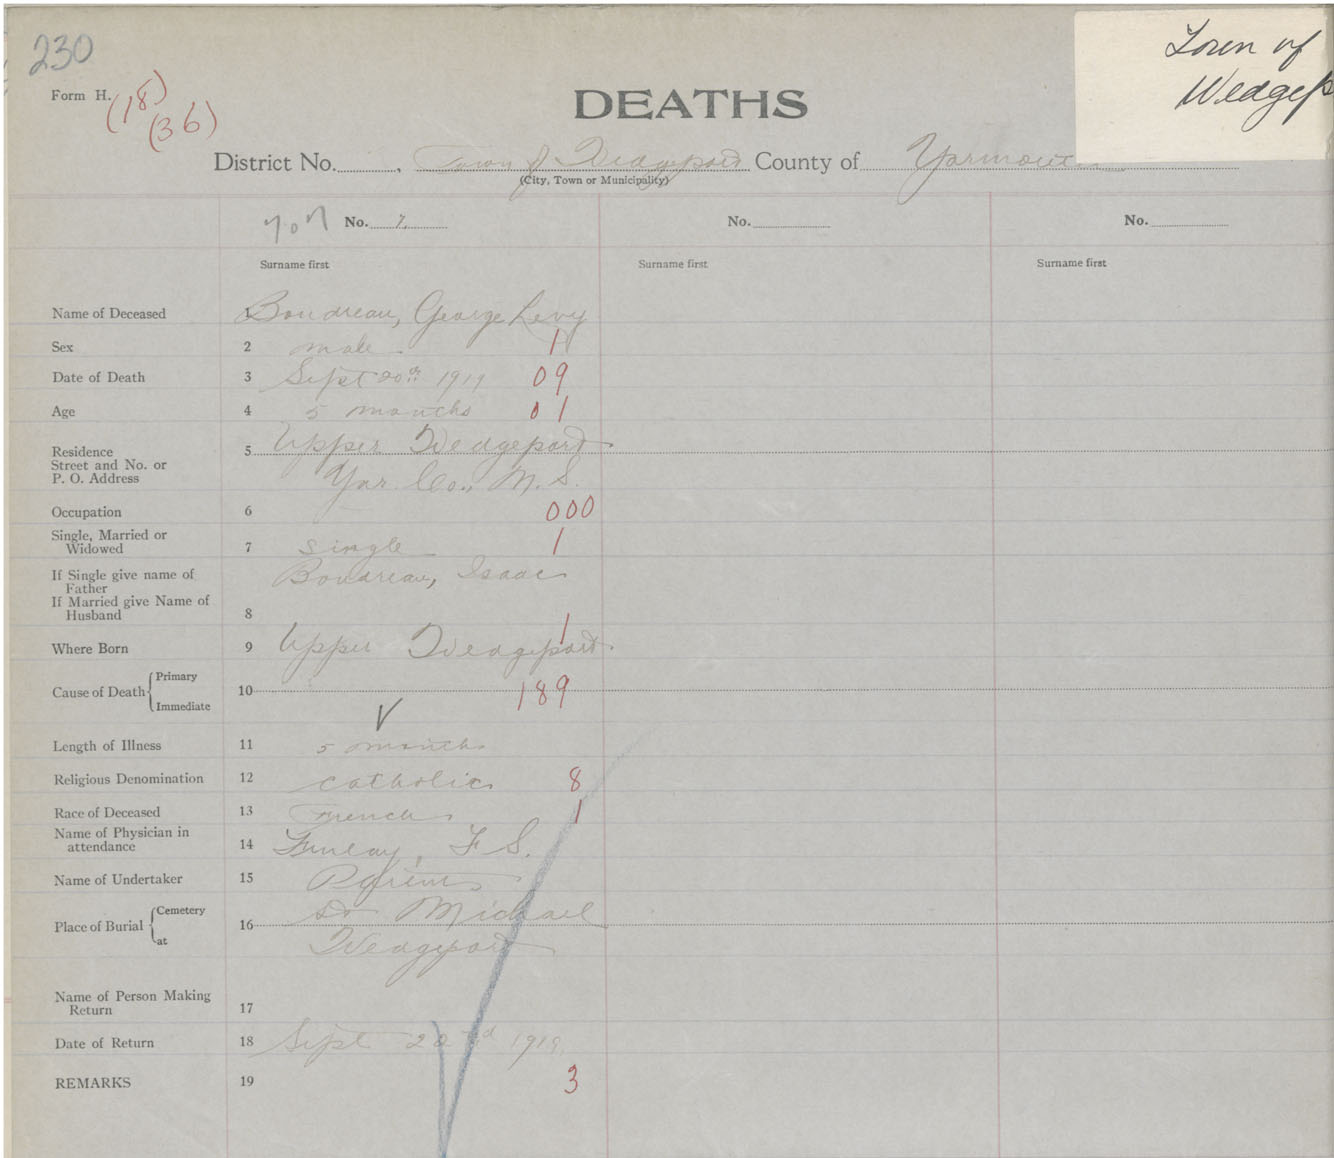 230
Town of
Wedgep
Form H.
(18)
(36)
DEATHS
District No. , Town of Wedgeport County of Yarmouth
(City, Town or Municipality)
No. 7. No. No.
Surname first Surname first Surname first
Name of Deceased 1 Boudreau, George Levy
Sex 2 male 1
Date of Death 3 Sept 20th 1919 09
Age 4 5 months 01
Residence 5 Upper Wedgeport
Street and No. or
P. O. Address Yar. Co., N.S.
Occupation 6 000
Single, Married or
Widowed 7 single 1
If Single give name of Boudreau, Isaac
Father
If Married give Name of
Husband 8 1
Where Born 9 Upper Wedgeport
Cause of Death Primary 10 189
Immediate
Length of Illness 11 5 months
Religious Denomination 12 Catholic 8
Race of Deceased 13 French 1
Name of Physician in
attendance 14 F S.
Name of Undertaker 15
Place of Burial Cemetery 16 St Michael
at Wedgeport
Name of Person Making
Return 17
Date of Return 18 Sept 22nd 1919.
REMARKS 19 3